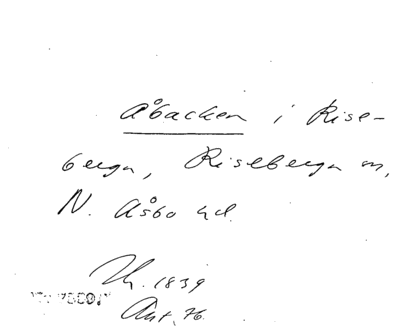 Åbacken i Rise-
berga, Riseberga sn,
N. Åsbo hd.
1839
Ant. 76.